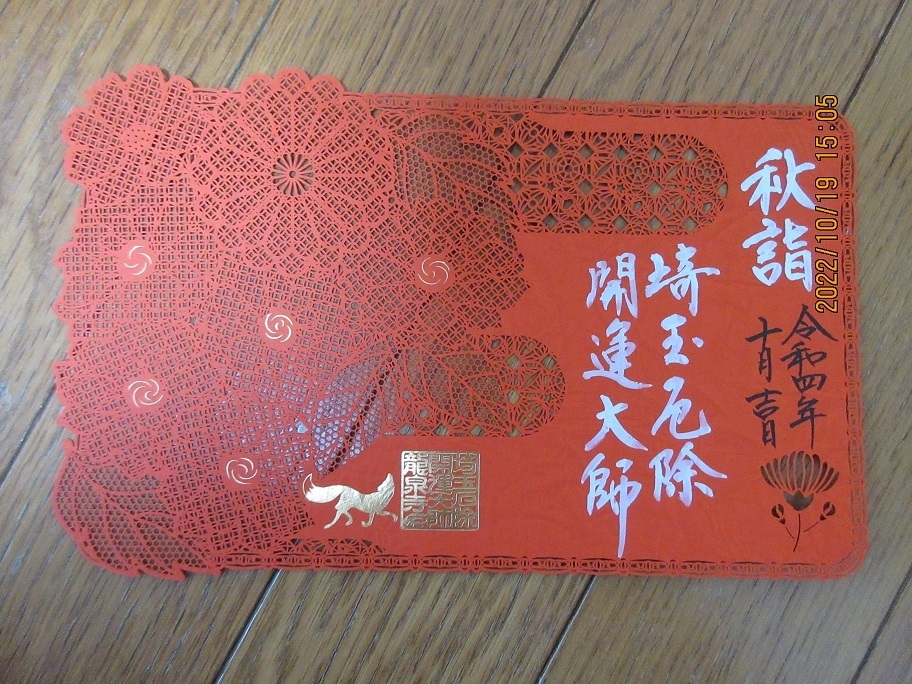 秋詣
令和四年
十月吉日
埼玉厄除
開運大師
埼玉厄除
開運大師
龍泉寺印
2022/10/19 15:05